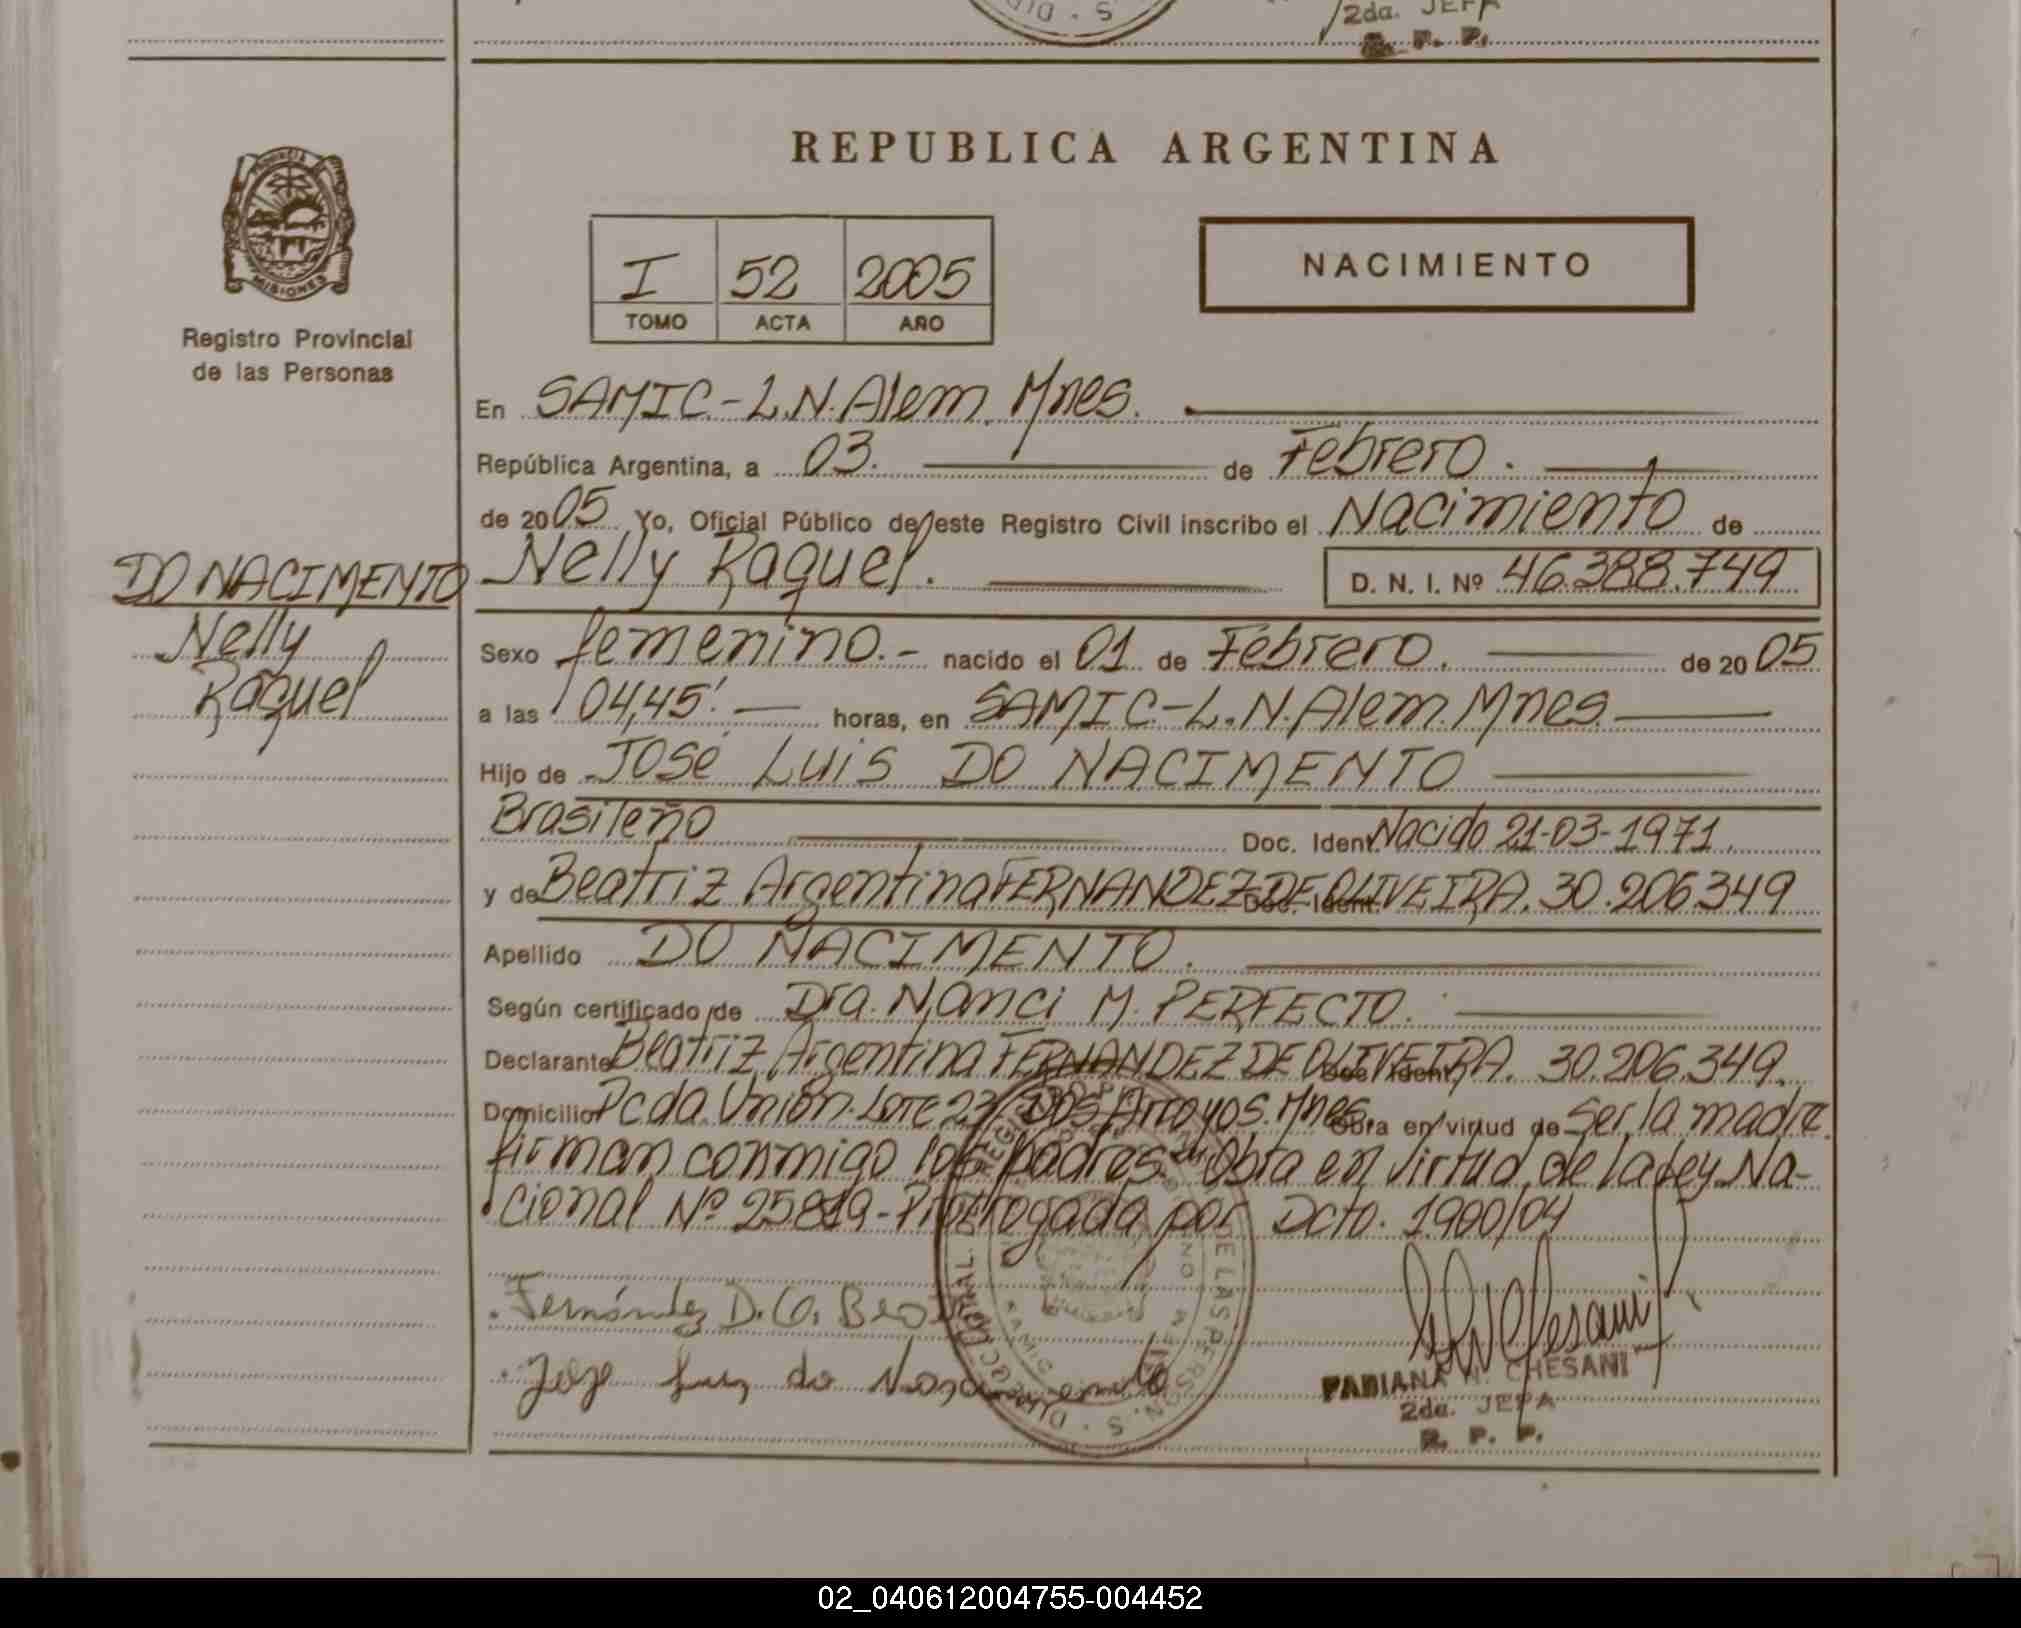 2da. JEFA
R. P. P.
REPUBLICA ARGENTINA
PROVINCIA
MISIONES
Registro Provincial
de las Personas
I 52 2005
TOMO ACTA AÑO
NACIMIENTO
En SAMIC.-L.N.Alem Mnes.
República Argentina, a 03. de Febrero.
de 2005 Yo, Oficial Público de este Registro Civil inscribo el Nacimiento de
Nelly Raquel. D. N. I. Nº 46.388.749
DO NACIMENTO
Nelly
Raquel
Sexo femenino.- nacido el 01 de Febrero. de 2005
a las 04,45'. horas, en SAMIC.-L.N.Alem. Mnes.
Hijo de José Luis DO NACIMENTO
Brasileño Doc. Ident. Nacido 21-03-1971.
y de Beatriz Argentina FERNANDEZ DE OLIVEIRA. Doc. Ident. 30.206.349
Apellido DO NACIMENTO.
Según certificado de Dra. Nanci M. PERFECTO.
Declarante Beatriz Argentina FERNANDEZ DE OLIVEIRA. Doc. Ident. 30.206.349.
Domicilio Pcda. Unión. Lote 23 Dos Arroyos. Mnes. Obra en virtud de Ser la madre.
firman conmigo los padres. Obra en virtud de la Ley Na-
cional Nº 25819-Prorrogada por Dcto. 1900/04
Fernández D. O.
Jose Luiz do Nascimento
FABIANA N. CHESANI
2da. JEFA
R. P. P.
02_040612004755-004452